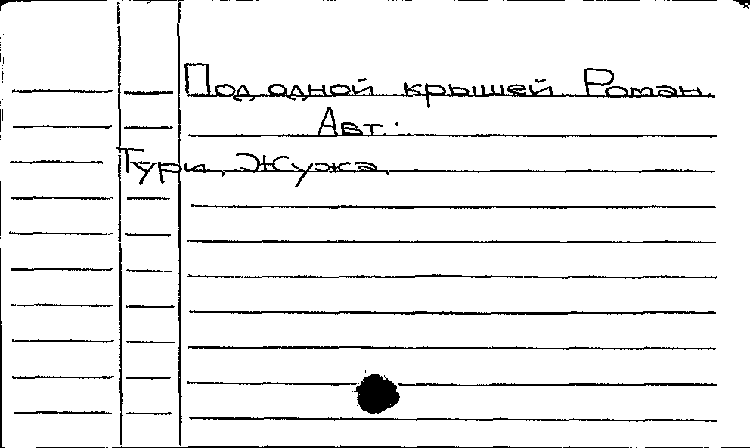 Под одной крышей Роман.
Авт.:
Тури, Жужа.